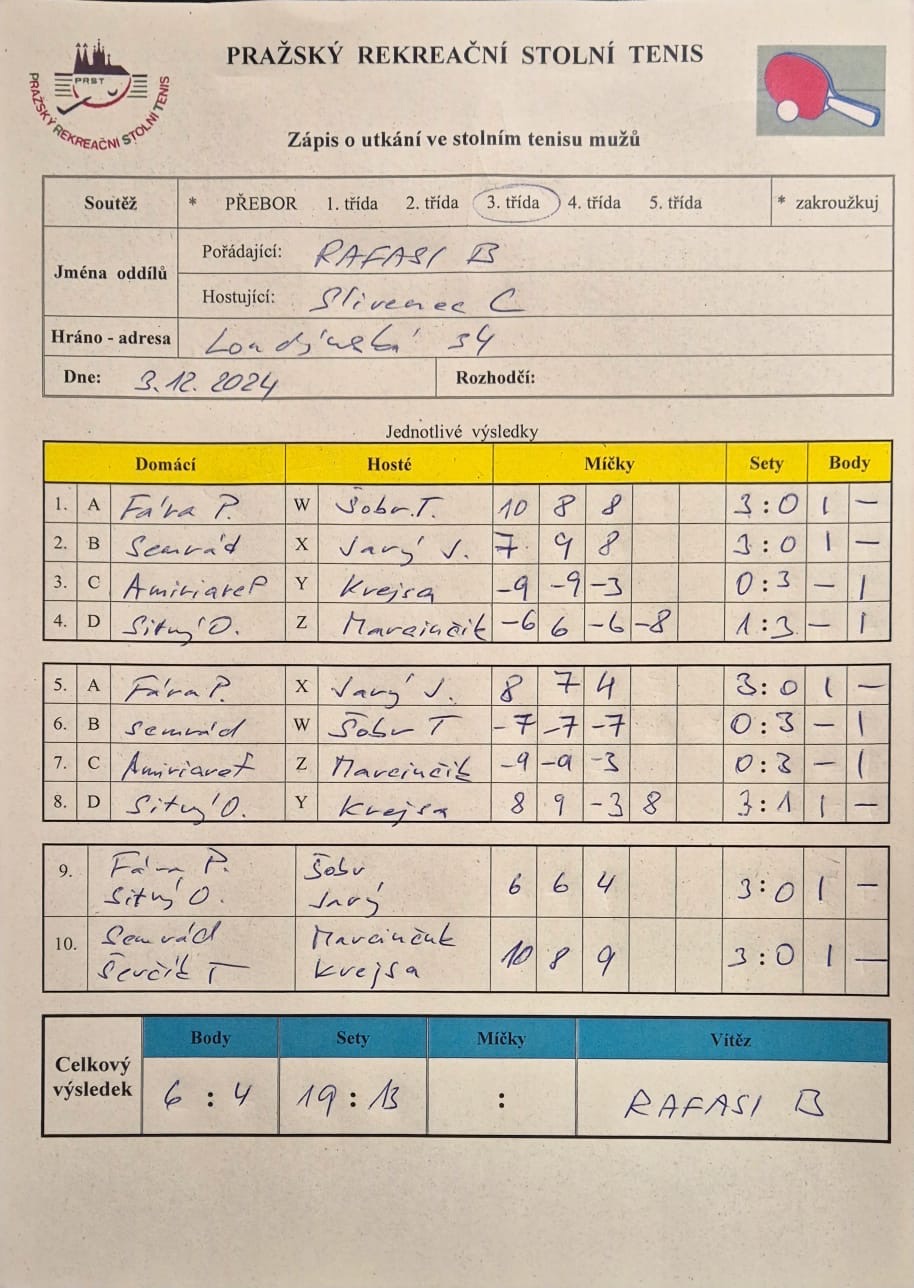 PRST
PRAŽSKÝ REKREAČNÍ STOLNÍ TENIS
PRAŽSKÝ REKREAČNÍ STOLNÍ TENIS
Zápis o utkání ve stolním tenisu mužů
Soutěž * PŘEBOR 1. třída 2. třída 3. třída 4. třída 5. třída * zakroužkuj
Jména oddílů
Pořádající: RAFASI B
Hostující: Slivenec C
Hráno - adresa Londýnská 34
Dne: 3.12. 2024 Rozhodčí:
Jednotlivé výsledky
Domácí Hosté Míčky Sety Body
1. A Fára P. W Šobr T. 10 8 8 3:0 1 –
2. B Semrád X Javý J. 7 9 8 3:0 1 –
3. C Y Krejsa -9 -9 -3 0:3 – 1
4. D Sitný O. Z Marcinčik -6 6 -6 -8 1:3 – 1
5. A Fára P. X Javý J. 8 7 4 3:0 1 –
6. B Semrád W Šobr T -7 -7 -7 0:3 – 1
7. C Z Marcinčik -9 -9 -3 0:3 – 1
8. D Sitný O. Y Krejsa 8 9 -3 8 3:1 1 –
9. Fára P. Šobr 6 6 4 3:0 1 –
Sitný O. Javý
10. Semrád Marcinčik 10 8 9 3:0 1 –
Ševčík T Krejsa
Celkový výsledek
Body Sety Míčky Vítěz
6 : 4 19 : 13 : RAFASI B